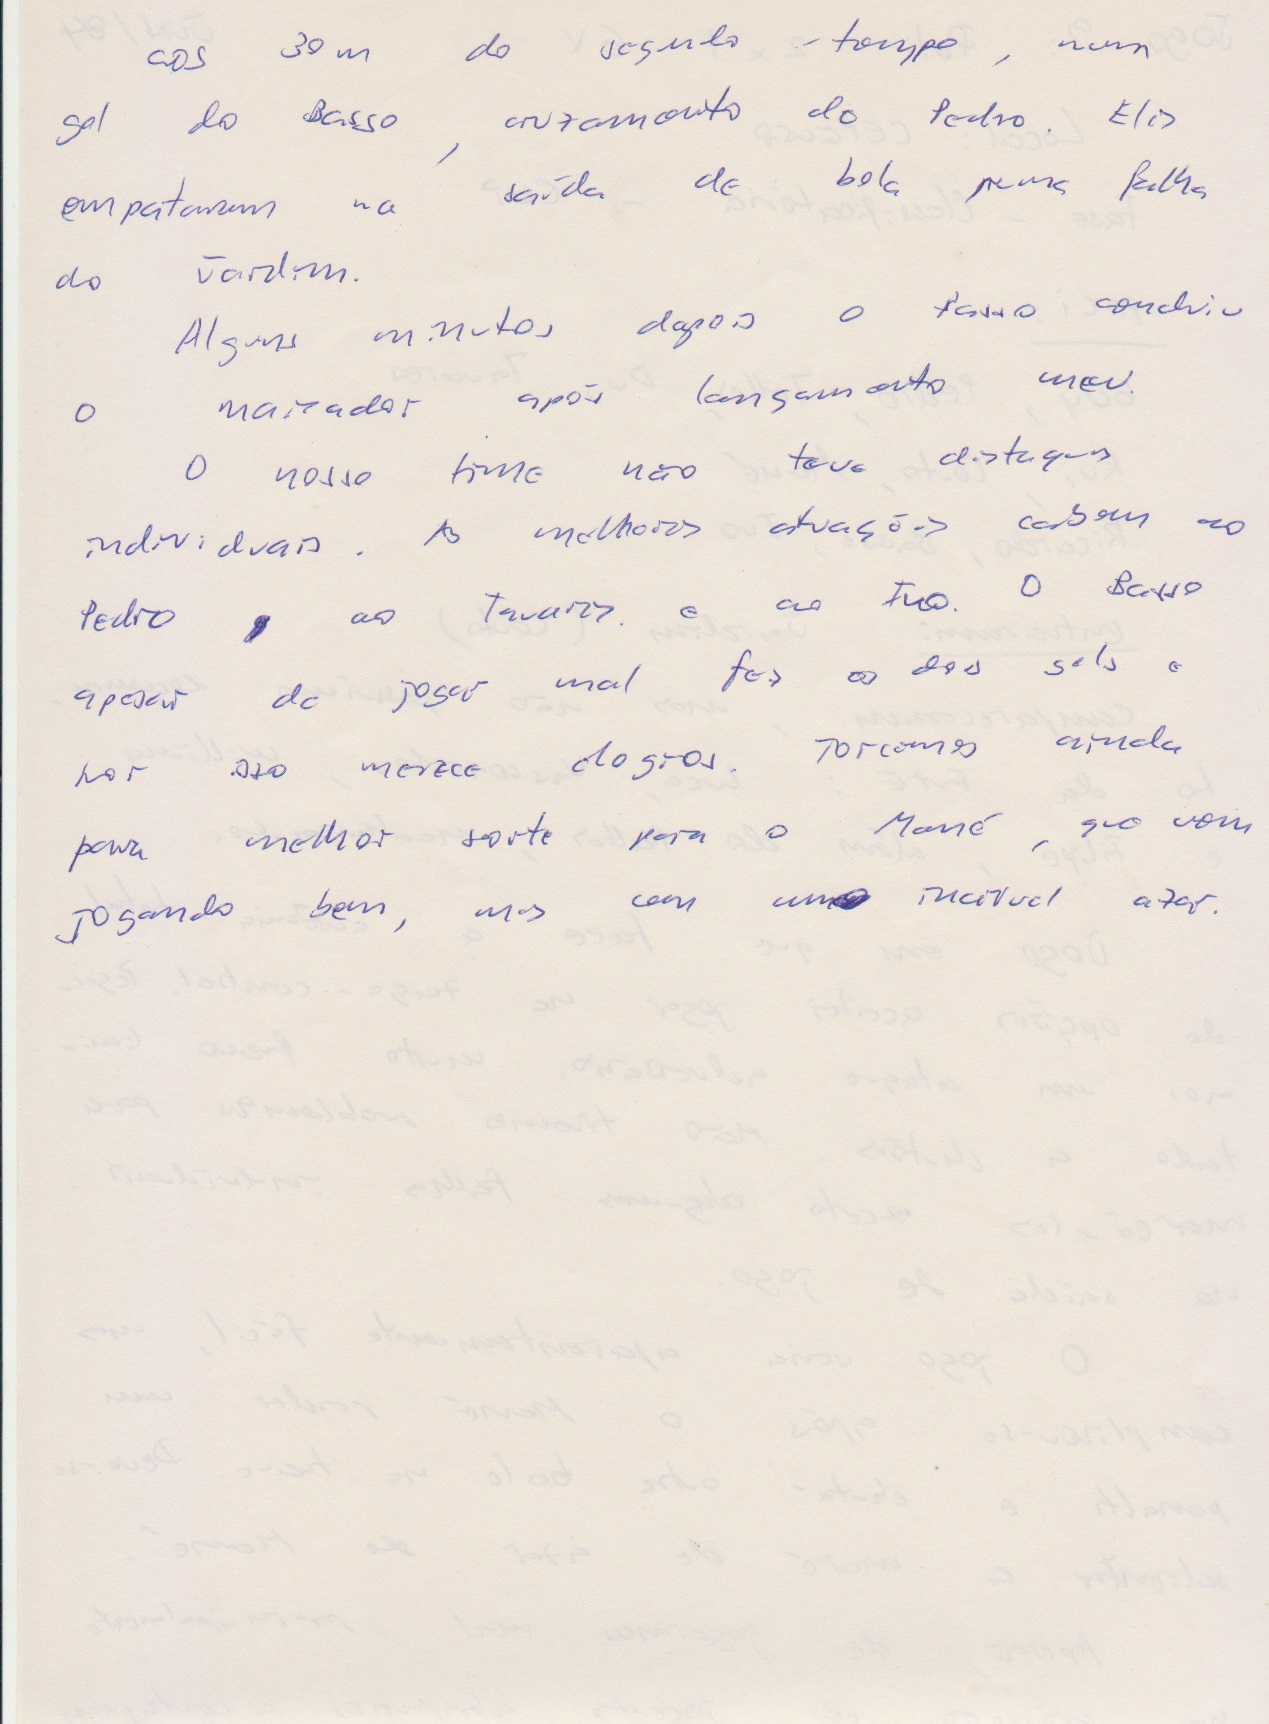 aos 30m do segundo-tempo, num
gol do Basso, cruzamento do Pedro. Eles
empataram na saída de bola numa falha
do Vardim.
Alguns minutos depois o Basso concluiu
o marcador após lançamento meu.
O nosso time não teve destaques
individuais. As melhores atuações cabem ao
Pedro, ao Tavares e ao Ivo. O Basso
apesar de jogar mal fez os dois gols e
por isso merece elogios. Torcemos ainda
para melhor sorte para o Mané, que vem
jogando bem, mas com incrível azar.